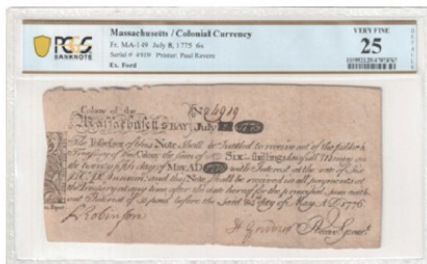 PCGS
BANKNOTE
Massachusetts / Colonial Currency
Fr. MA-149 July 8, 1775 6s
Serial # 4919 Printer: Paul Revere
Ex. Ford
VERY FINE
25
DETAILS
Colony of the
No 4919
Massachusetts BAY July 1775
The Possessor of this Note shall be Intitled to receive out of the publick
Treasury of this Colony the sum of Six shillings lawfull Money on
the twenty fifth day of May AD with Interest at the rate of Six
this Note shall be received in all payments at
the Treasury at any time after the date hereof for the principal sum with
out Interest if so paid before the said day of May A.D. 1776
Robinson